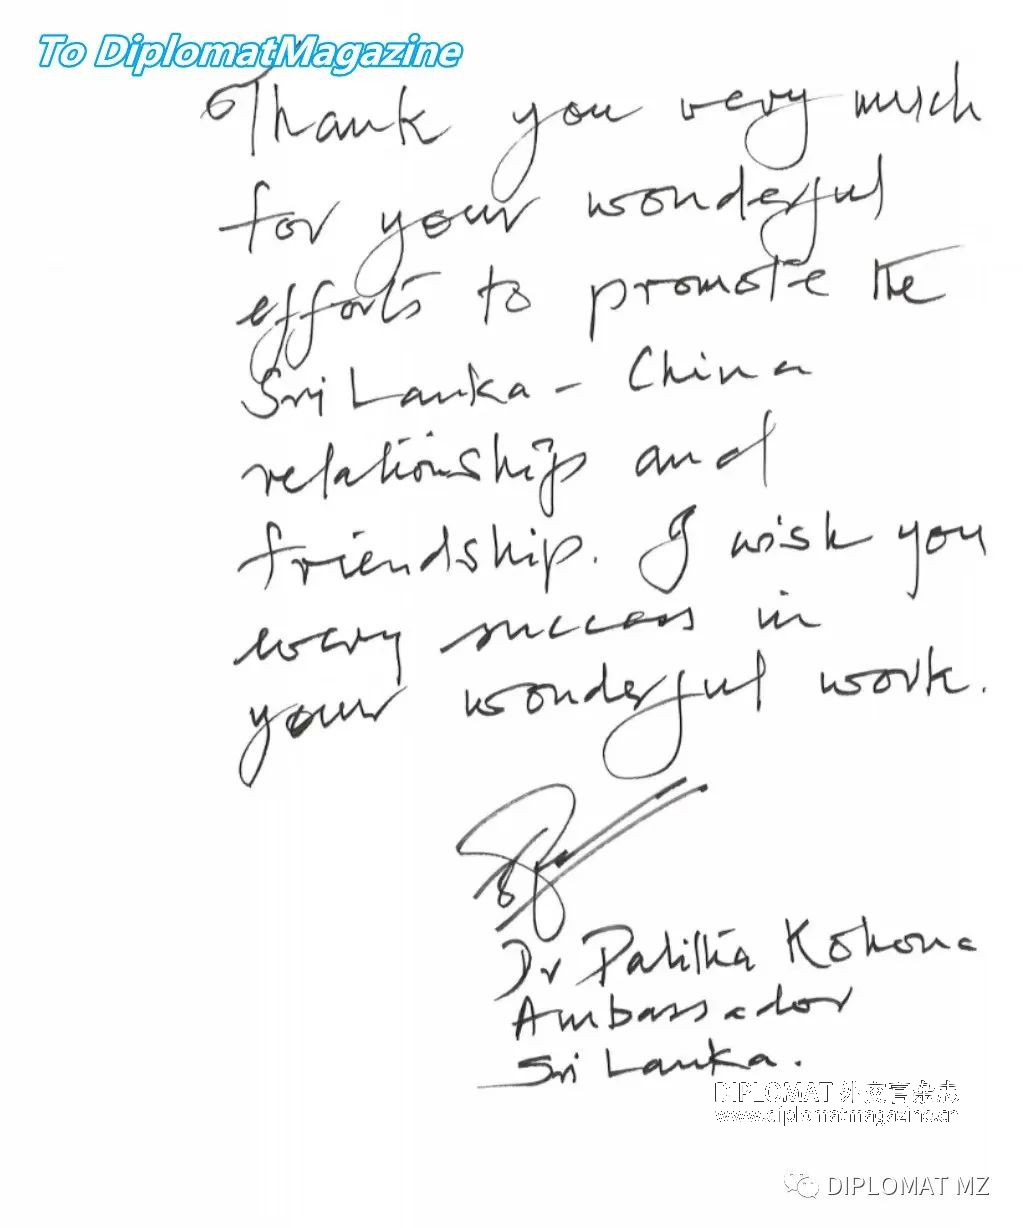 To DiplomatMagazine
Thank you very much
for your wonderful
efforts to promote the
Sri Lanka - China
relationship and
friendship. I wish you
every success in
your wonderful work.
Dr Palitha Kohona
Ambassador
Sri Lanka.
DIPLOMAT 外交官杂志
www.diplomatmagazine.cn
DIPLOMAT MZ